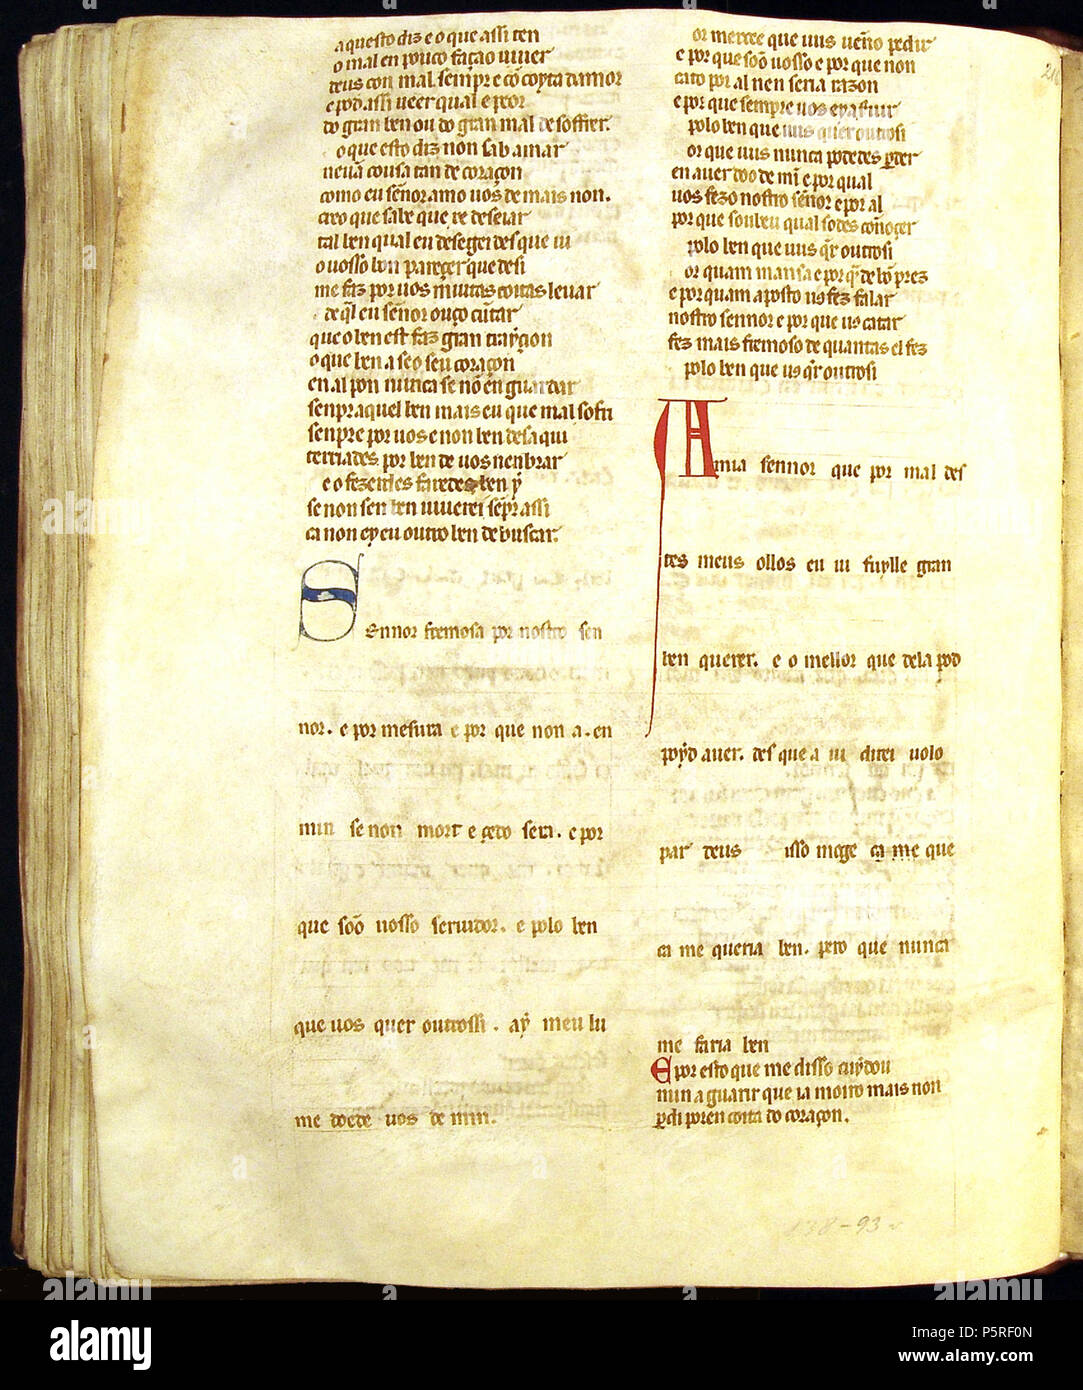 aquesto diz e o que assi ten
o mal en pouco façao viuer
deus con mal sempre cõ coyta damor
e pod assi ueer qual e peor
do gram ben ou do gran mal de soffrer.
o que esto diz non sab amar
neũa cousa tan de coraçon
como eu señor amo uos de mais non.
creo que sabe que x̄e deseiar
tal ben qual eu desegei des que ui
o uosso ben pareçer que desi
me faz por uos muitas coitas leuar
de ql̃ eu señor ouço cũtar
que o ben est faz gran trayçon
o que ben a se o seu coraçon
en al pon nunca se nõ en guardar
senpr aquel ben mais eu que mal sofri
senpre por uos e non ben des aqui
terriades por ben de uos nenbrar
e o fezerdes faredes ben y
se non sen ben uiuerei sẽpr assi
ca non ey eu outro ben de buscar.
Sennor fremosa por nostro sen
nor. e por mesura e por que non a. en
min se non mort e çedo sera. e por
que soõ uosso seruidor. e polo ben
que uos quer outrossi. aẏ meu lu
me doede uos de min.
or mercee que uus ueño pedir
e por que soõ uosso e por que non
cato por al nen seria razon
e por que sempre uos ey a seruir
polo ben que uus quer outrosi
or que uus nunca podedes ꝑder
en auer doo de mĩ e por qual
uos fezo nostro señor e por al
por que soub eu qual sodes coñoçer
polo ben que uus qr̃ outrosi
or quam mansa e por q̃ de bõ prez
e por quam aposto us fez falar
nostro sennor e por que us catar
fez mais fremoso de quantas el fez
polo ben que us qr̃ outrosi
A mia sennor que por mal des
tes meus ollos eu ui fuylle gran
ben querer. e o mellor que dela pod
poẏd auer. des que a ui direi uolo
par deus disso moge ca me que
ca me queria ben. pero que nunca
me faria ben
E por esto que me disso cuẏdou
min a guarir que ia moiro mais non
ꝑdi poren coita do coraçon.
138-93 v
alamy
Image ID: P5RF0N
www.alamy.com